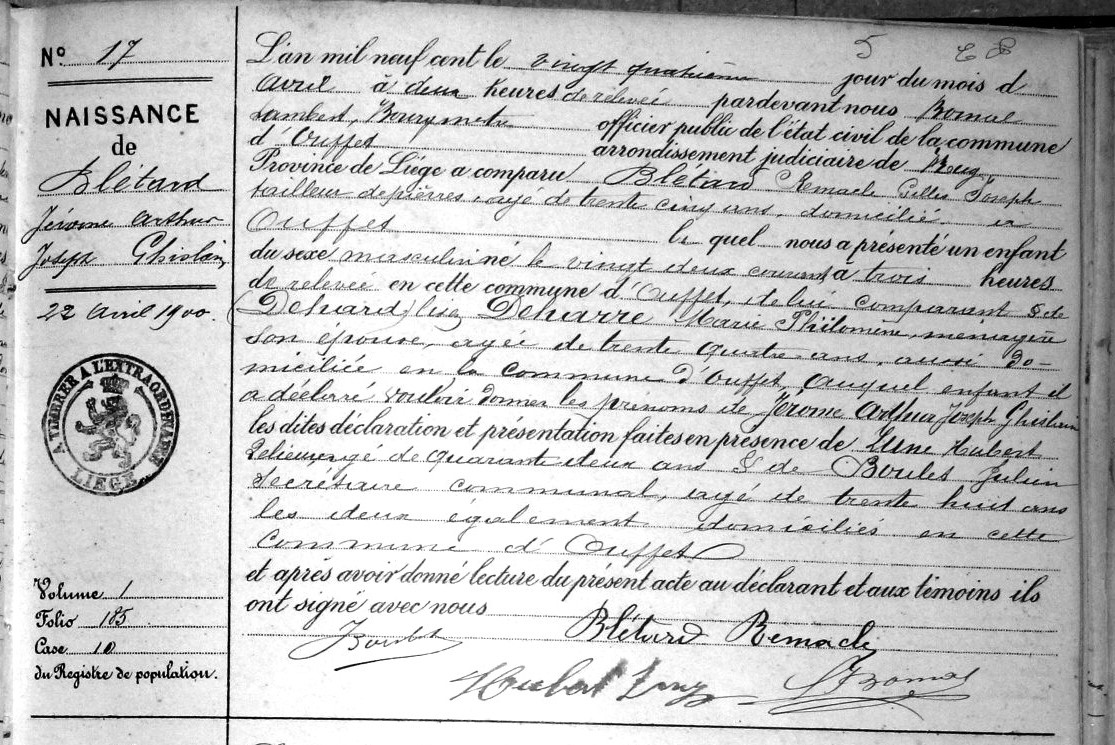 N° 17
NAISSANCE
de
Blétard
Jérome Arthur
Joseph Ghislain
22 avril 1900.
A TIMBRER A L'EXTRAORDINAIRE
LIÉGE
Volume 1
Folio 185
Case 10
du Registre de population.
5
L'an mil neuf cent le vingt quatrième jour du mois d
Avril à deux heures de relevée pardevant nous Bomal
Lambert, Bourgmestre officier public de l'état civil de la commune
d'Ouffet arrondissement judiciaire de Huy
Province de Liége a comparu Blétard Remacle Gilles Joseph
tailleur de pierres, agé de trente cinq ans, domicilié à
Ouffet le quel nous a présenté un enfant
du sexe masculin né le vingt deux courant à trois heures
de relevée en cette commune d'Ouffet, de lui comparant & de
(Dehard) lisez Deharre Marie Philomène, ménagère
son épouse, agée de trente quatre ans, aussi do-
miciliée en la commune d'Ouffet, auquel enfant il
a déclaré vouloir donner les prénoms de Jérome Arthur Joseph Ghislain
les dites déclaration et présentation faites en présence de Hubert
agé de quarante deux ans & de Boulet Julien
secrétaire communal, agé de trente huit ans
les deux également domiciliés en cette
commune d'Ouffet
et après avoir donné lecture du présent acte au déclarant et aux témoins ils
ont signé avec nous
Blétard Remacle
Hubert
LBomal